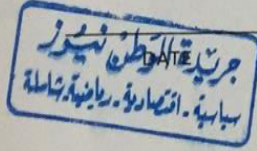 جريدة الوطن نيوز
DATE
سياسية - اقتصادية - رياضية - شاملة